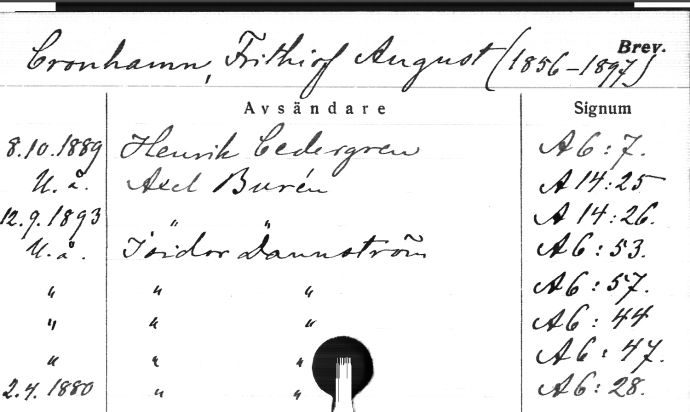 Brev.
Cronhamn, Frithiof August (1856-1897)
Avsändare Signum
8.10.1889 Henrik Cedergren A 6:7.
U.å. Axel Burén A 14:25
12.9.1893 " " A 14:26.
U.å. Isidor Dannström A 6:53.
" " " A 6:57.
" " " A 6:44
" " " A 6:47.
2.4.1880 " " A 6:28.